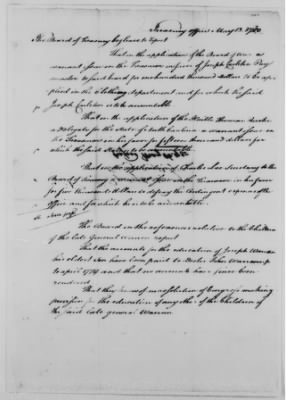 Treasury office May 13. 1780
The Board of Treasury beg leave to report
That on the application of the Board of War a
warrant issue on the Treasurer in favor of Joseph Carleton Pay
master to said board for one hundred thousand dollars to be app
in the Cloathing department and for which the said
Joseph Carleton is to be accountable.
That on the application of the Honble Thomas Burke
a Delegate for the State of North Carolina a warrant issue on
the Treasurer in his favor for fifteen thousand dollars for
which the said State is to be accountable
That on the application of Charles Lee Secretary to the
Board of Treasury a warrant issue on the Treasurer in his favor
for five thousand dollars to defray the Contingent expences of the
office and for which he is to be accountable.
The Board on the reference relative to the Children
of the late General Warren report
That the accounts for the education of Joseph Warren
his eldest son have been paid to Doctor John Warren up
to april 1779 and that no accounts have since been
rendered
That they know of no resolution of Congress making
provision for the education of any other of the Children of
the said late general Warren